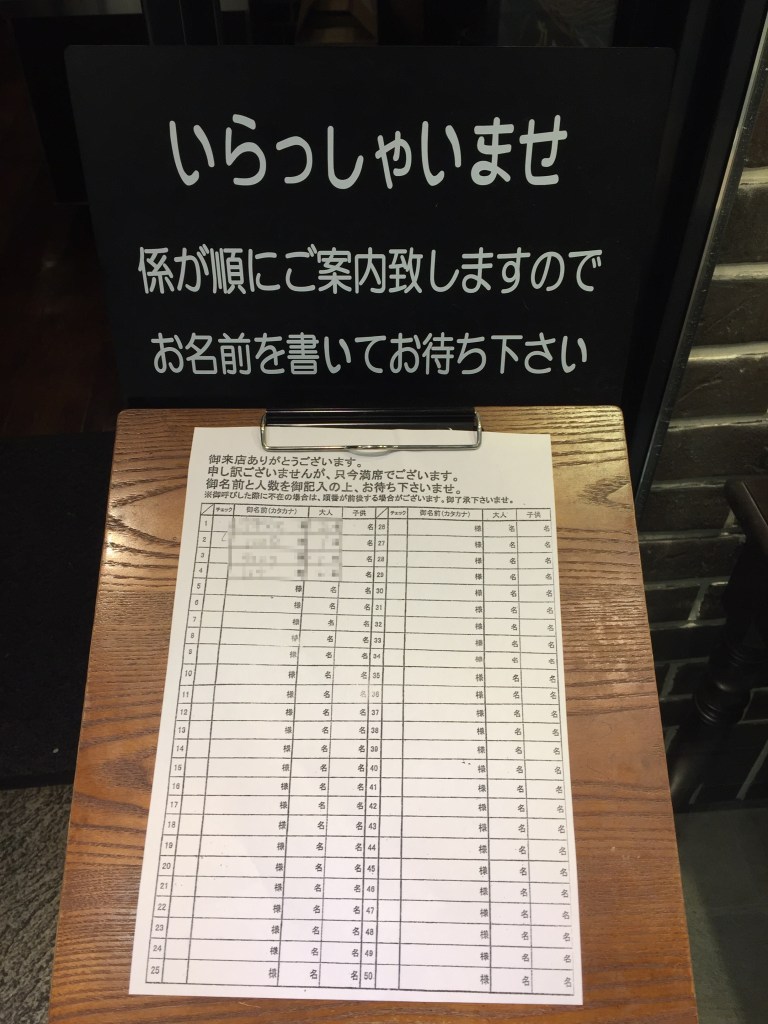 いらっしゃいませ
係が順にご案内致しますので
お名前を書いてお待ち下さい
御来店ありがとうございます。
申し訳ございませんが、只今満席でございます。
御名前と人数を御記入の上、お待ち下さいませ。
※御呼びした際に不在の場合は、順番が前後する場合がございます。御了承下さいませ。
チェック 御名前(カタカナ) 大人 子供 チェック 御名前(カタカナ) 大人 子供
1 名 26 様 名 名
2 名 27 様 名 名
3 名 28 様 名 名
4 名 29 様 名 名
5 様 名 名 30 様 名 名
6 様 名 名 31 様 名 名
7 様 名 名 32 様 名 名
8 様 名 名 33 様 名 名
9 様 名 名 34 様 名 名
10 様 名 名 35 様 名 名
11 様 名 名 36 様 名 名
12 様 名 名 37 様 名 名
13 様 名 名 38 様 名 名
14 様 名 名 39 様 名 名
15 様 名 名 40 様 名 名
16 様 名 名 41 様 名 名
17 様 名 名 42 様 名 名
18 様 名 名 43 様 名 名
19 様 名 名 44 様 名 名
20 様 名 名 45 様 名 名
21 様 名 名 46 様 名 名
22 様 名 名 47 様 名 名
23 様 名 名 48 様 名 名
24 様 名 名 49 様 名 名
25 様 名 名 50 様 名 名